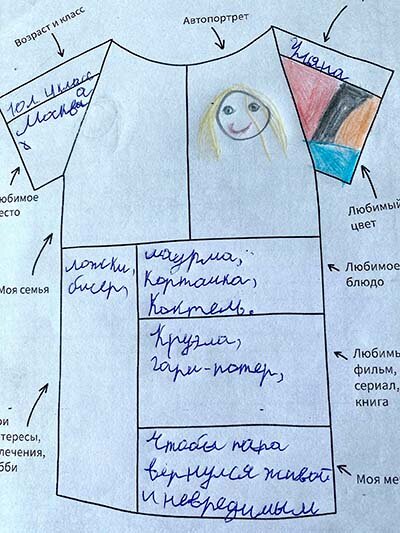 Возраст и класс
Автопортрет
10л. 4 класс
Москва
Уляна
юбимое
есто
Любимый
цвет
Моя семья
бисер,
шаурма,
Любимое
блюдо
Коктель.
Круэла,
гари-потер,
Любимы
фильм,
сериал,
книга
ои
тересы,
лечения,
бби
Чтобы папа
вернулся живой
и невредимым
Моя ме